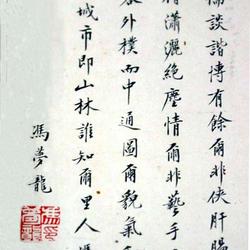 儒談諧博有餘爾非俠肝腸
瀟灑絕塵情爾非藝手
外樸而中通圖爾貌氣
城市即山林誰知爾里人
馮夢龍